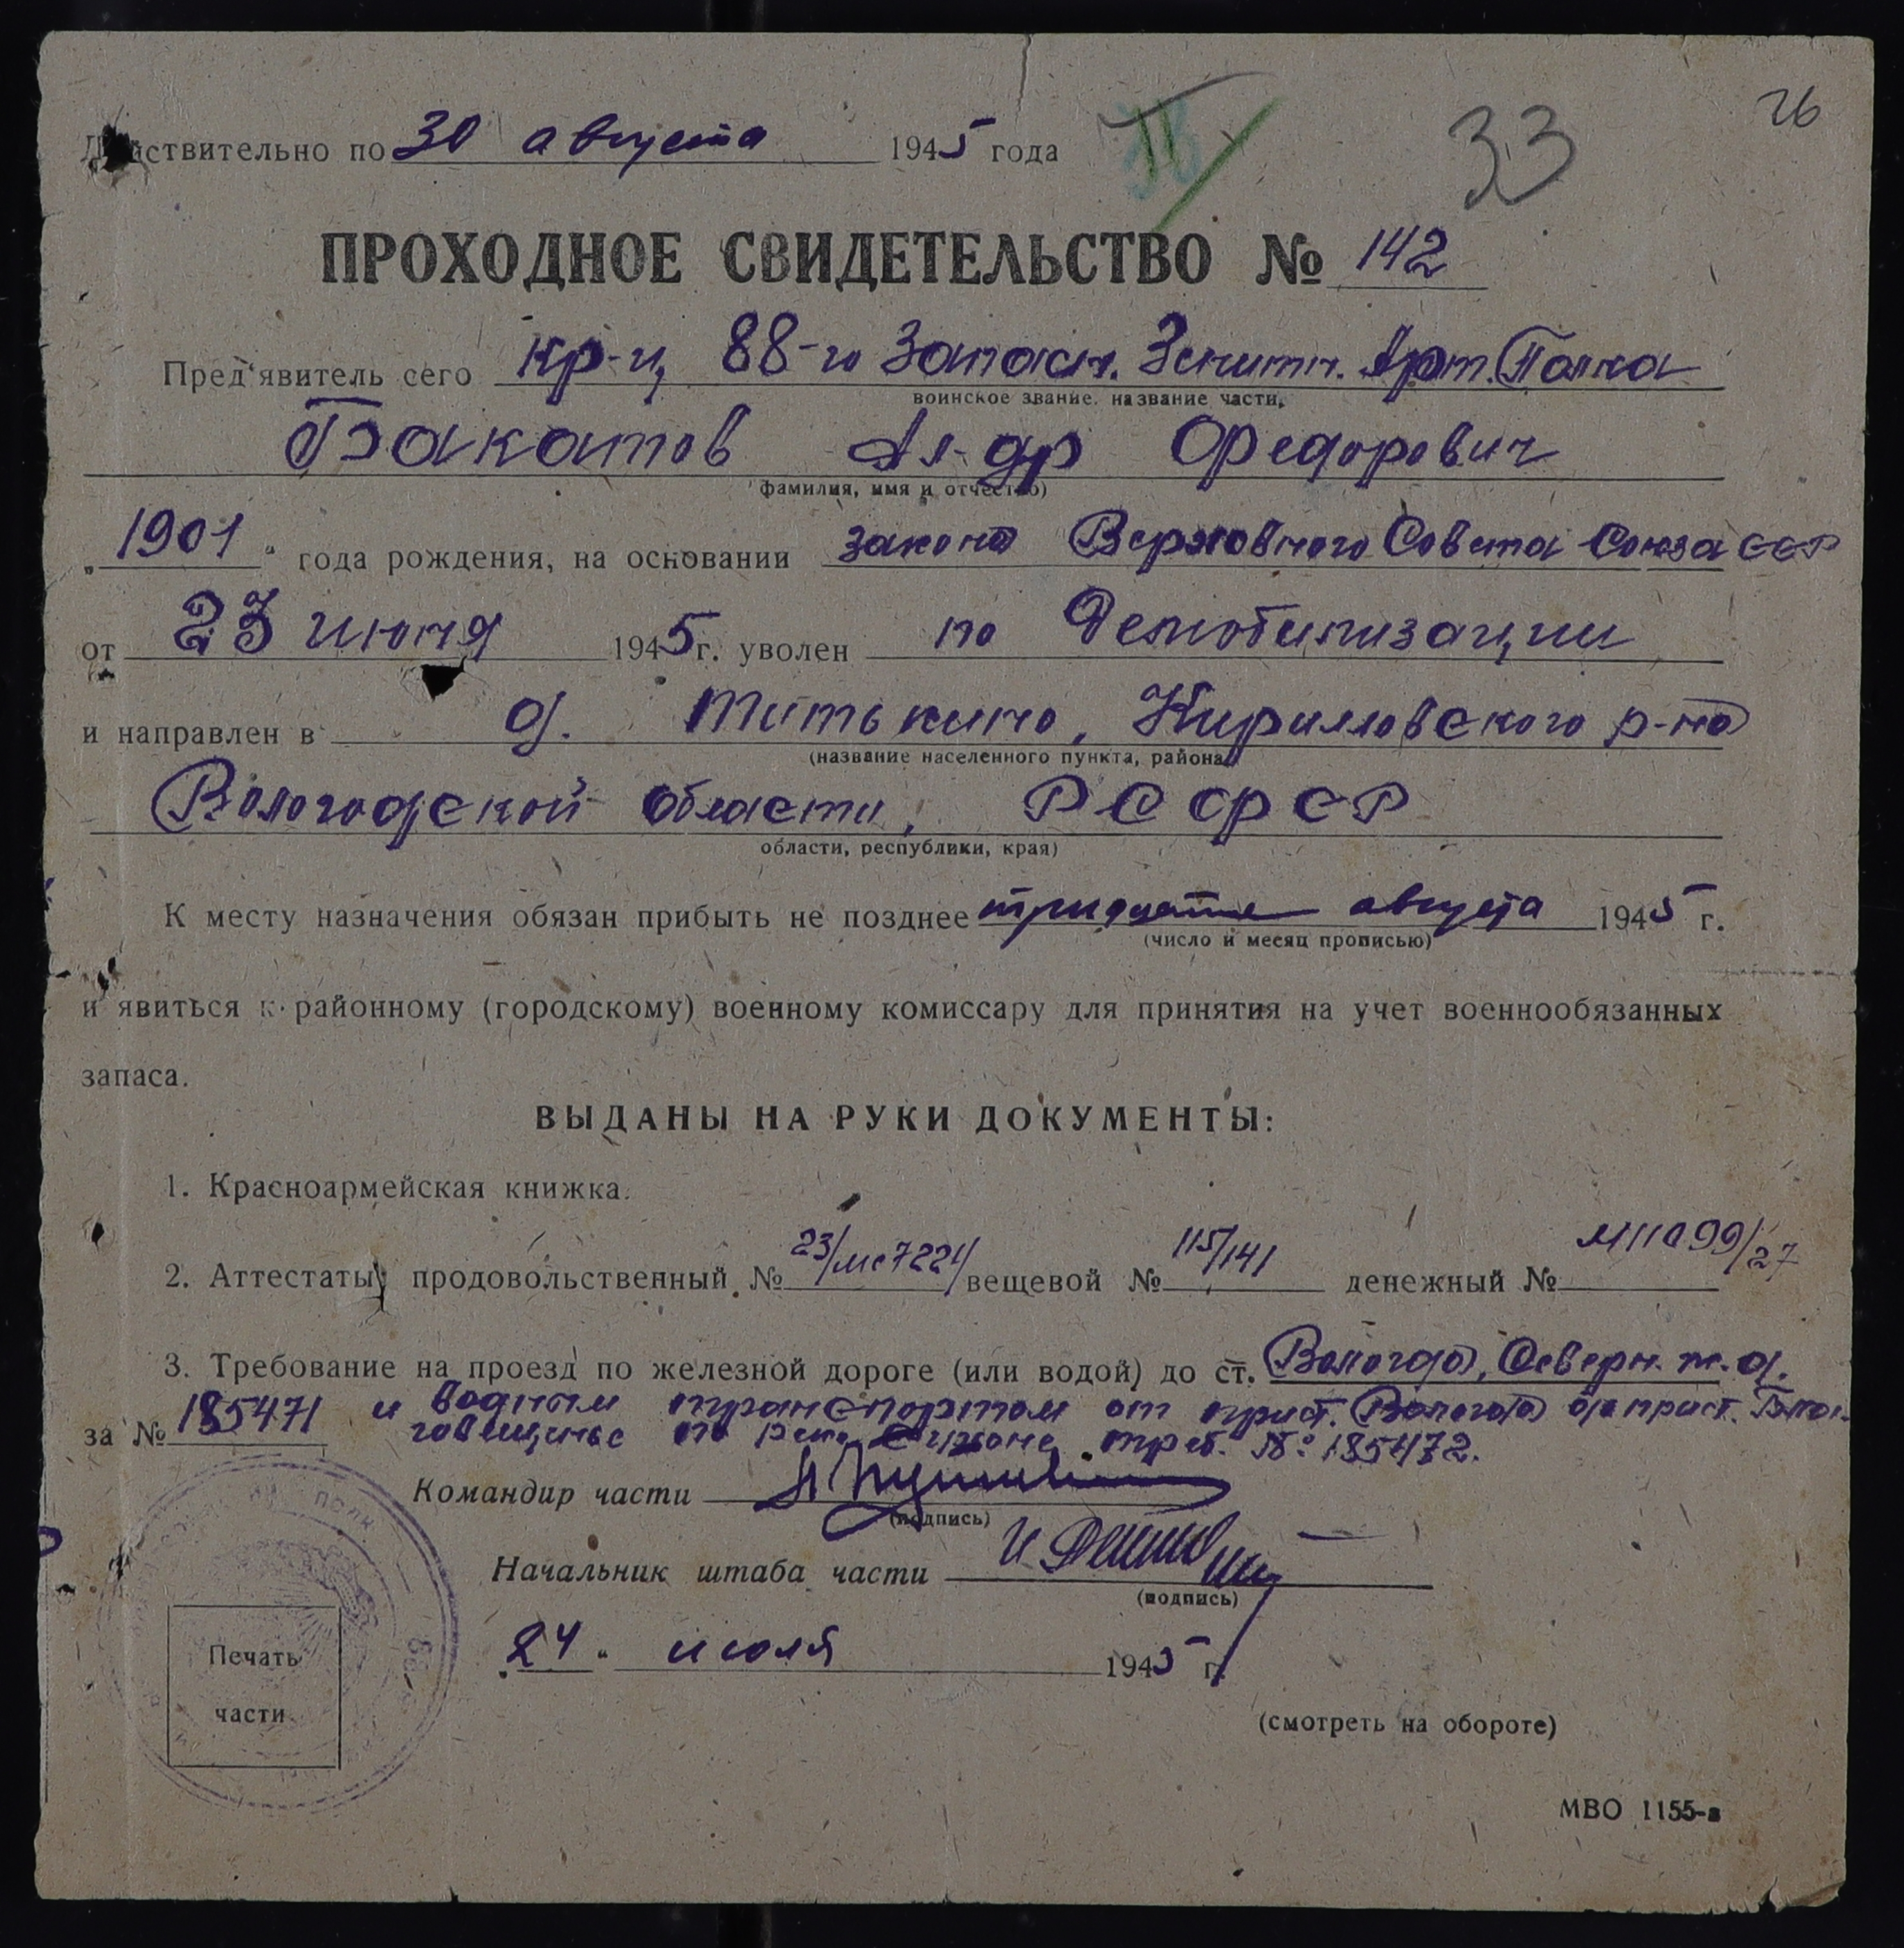 26
33
Действительно по 30 августа 1945 года
ПРОХОДНОЕ СВИДЕТЕЛЬСТВО № 142
Пред'явитель сего кр-ц 88-го Запасн. Зенитн. Арт. Полка
воинское звание. название части,
Бакатов Ал-др Федорович
фамилия, имя и отчество)
„1901" года рождения, на основании закона Верховного Совета Союза ССР
от 23 июня 1945 г. уволен по Демобилизации
и направлен в д. Титькино, Кирилловского р-на
(название населенного пункта, района
Вологодской области, РСФСР
области, республики, края)
К месту назначения обязан прибыть не позднее тридцатое августа 1945 г.
(число и месяц прописью)
и явиться к районному (городскому) военному комиссару для принятия на учет военнообязанных
запаса.
ВЫДАНЫ НА РУКИ ДОКУМЕНТЫ:
1. Красноармейская книжка.
2. Аттестаты: продовольственный № вещевой № 115/141 денежный №
3. Требование на проезд по железной дороге (или водой) до ст. Вологда, Северн. ж. д.
за № 185471 и водным транспортом от прист. Вологда до прист. Благ-
говещенье по реке треб. № 185472.
Командир части
(подпись)
Начальник штаба части
(подпись)
„24" июля 1945 г.
Печать
части
(смотреть на обороте)
МВО 1155-в